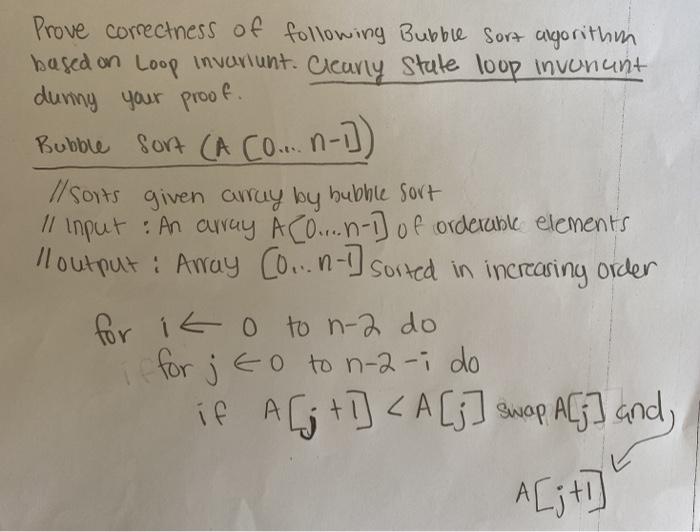 Prove correctness of following Bubble Sort algorithm
based on Loop Invariunt. Clearly State loop invariant
during your proof.
Bubble Sort (A [0.... n-1])
//Sorts given array by bubble sort
// Input : An array A[0....n-1] of orderable elements
//output : Array [0... n-1] sorted in increasing order
for i ← 0 to n-2 do
for j ← 0 to n-2-i do
if A[j+1] < A[j] swap A[j] and
A[j+1]